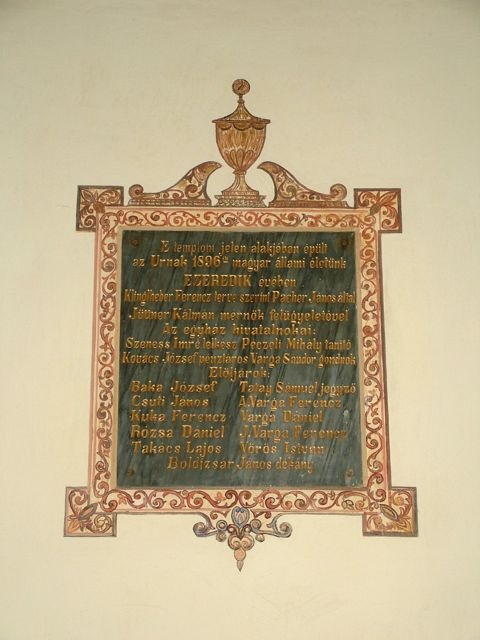 E templom jelen alakjában épült
az Úrnak 1896ik magyar állami életünk
EZEREDIK évében
Ferencz terve szerint Pacher János által
Jüttner Kálmán mérnök felügyeletével
Az egyház hivatalnokai:
Szeness Imre lelkész Péczeli Mihály tanító
Kovács József pénztáros Varga Sándor gondnok
Elöljárók:
Baka József Tatay Sámuel jegyző
Csuti János A.Varga Ferencz
Kuka Ferencz Varga Dániel
Rózsa Dániel J.Varga Ferencz
Takács Lajos Vörös István
János dékány